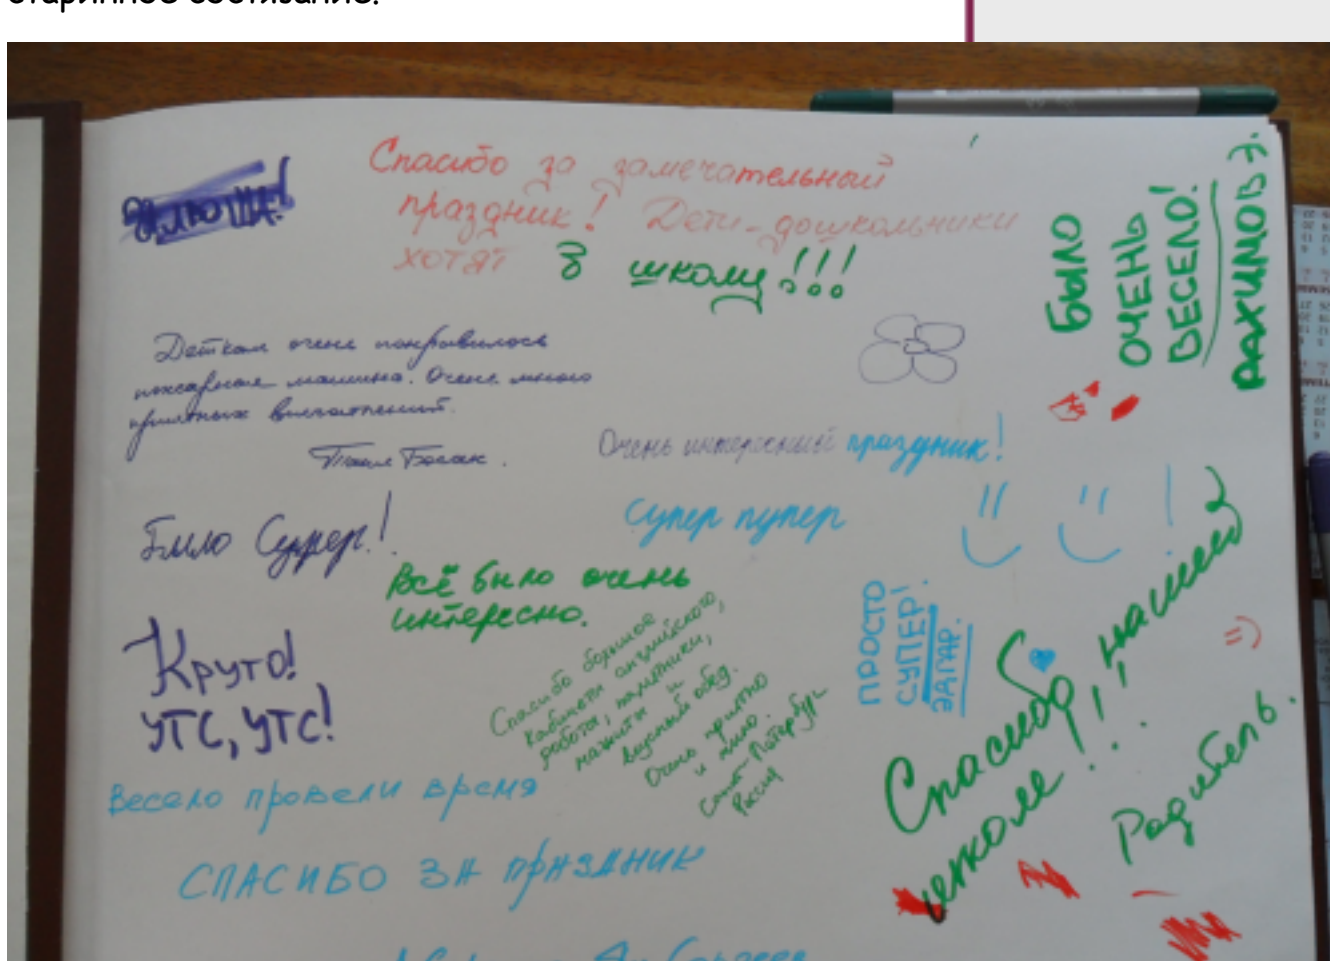 старинное состязание.
Спасибо за замечательный
праздник! Дети-дошкольники
хотят в школу!!!
БЫЛО
ОЧЕНЬ
ВЕСЕЛО!
РАХИМОВ Э.
Деткам очень понравилось
пожарная машина. Очень много
приятных впечатлений.
Очень интересный праздник!
супер пупер
Было Супер!
Всё было очень
интересно.
Круто!
УТС, УТС!
Спасибо большое
кабинету английского,
роботы, памятники,
магниты и
вкусный обед.
Очень приятно
и мило.
Санкт-Петербург
Россия
ПРОСТО
СУПЕР!
ЗАГАР.
=)
Спасибо нашей
школе!!!
Родитель.
Весело провели время
СПАСИБО ЗА ПРАЗДНИК